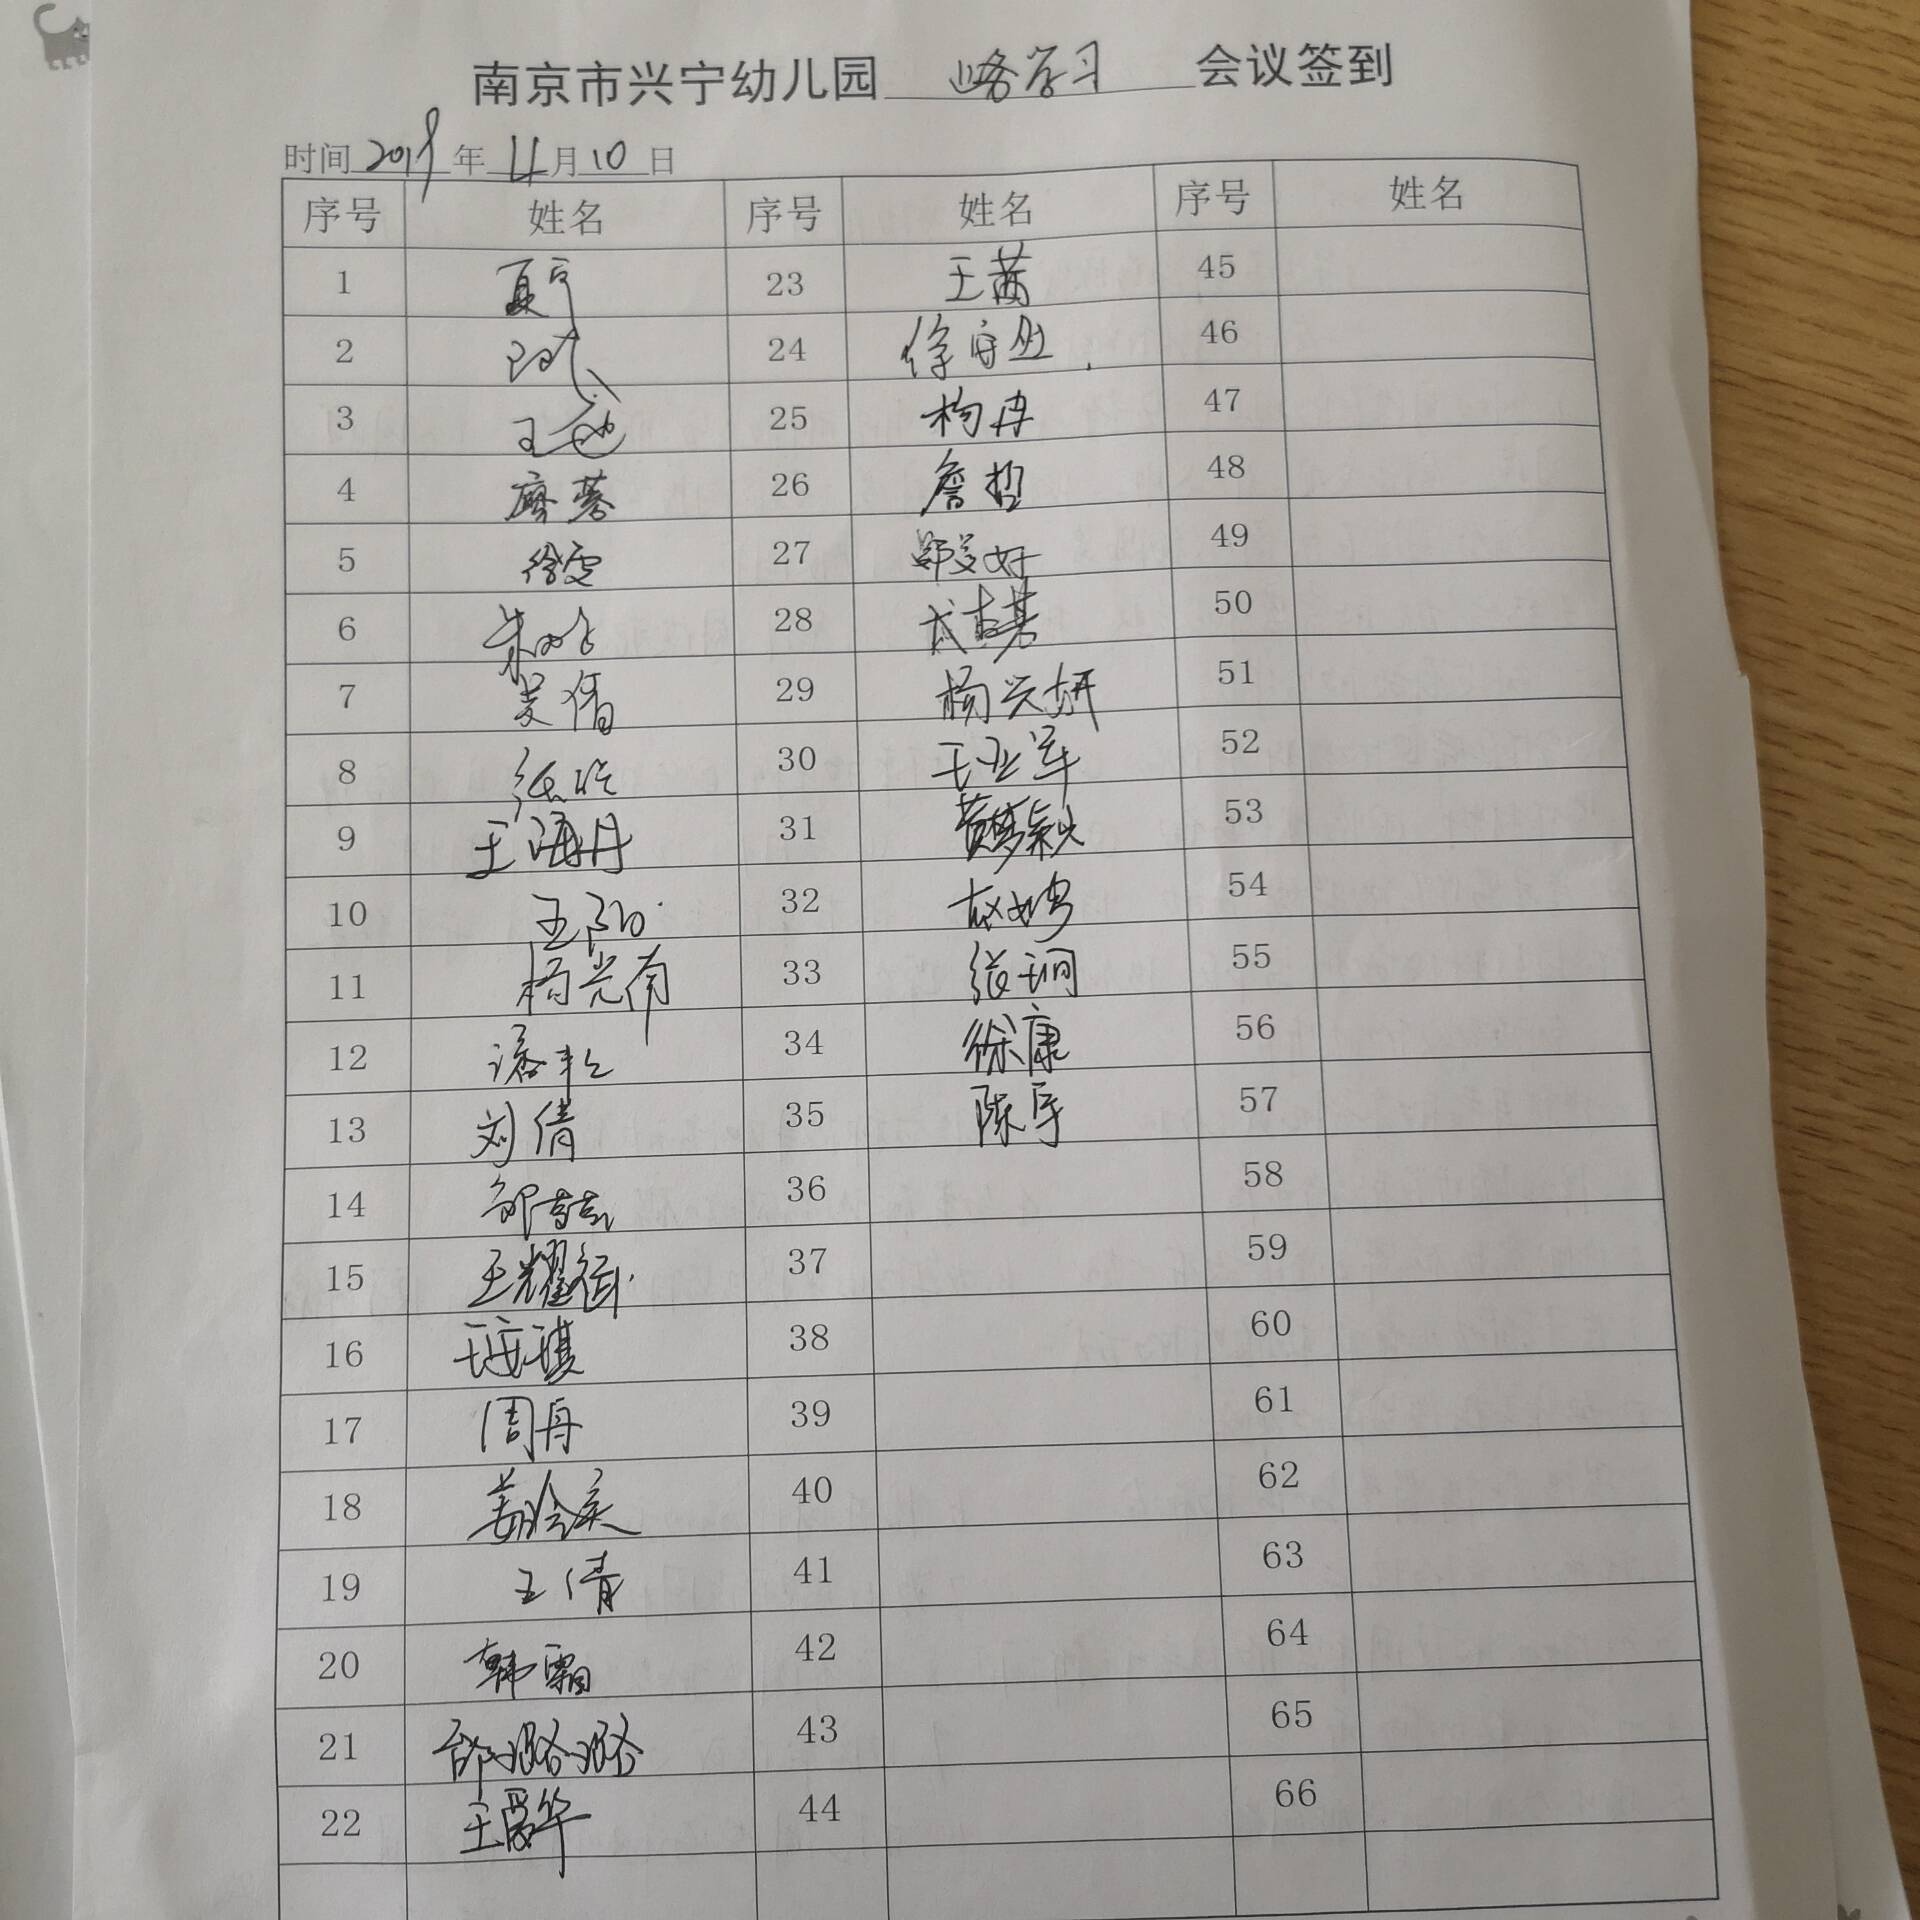 南京市兴宁幼儿园 业务学习 会议签到
时间 2019 年 11 月 10 日
序号 姓名 序号 姓名 序号 姓名
1 夏 23 王茜 45
2 24 徐 46
3 王 25 杨冉 47
4 廖蓉 26 詹哲 48
5 徐雯 27 郑 好 49
6 朱 28 50
7 倩 29 杨兴妍 51
8 张 30 王亚军 52
9 王海丹 31 黄梦颖 53
10 王 32 赵娉 54
11 杨光南 33 张珂 55
12 潘 34 徐康 56
13 刘倩 35 陈 57
14 邹喆喆 36 58
15 王耀 37 59
16 琪 38 60
17 周丹 39 61
18 姜 40 62
19 王倩 41 63
20 韩霜 42 64
21 邰璐璐 43 65
22 王 华 44 66